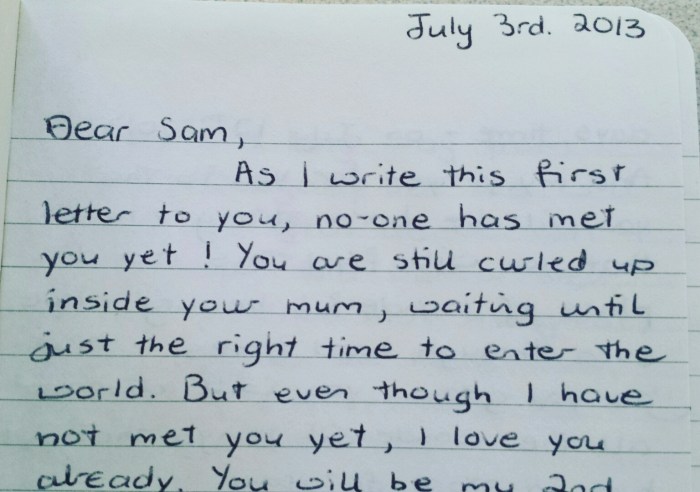 July 3rd. 2013
Dear Sam,
As I write this first
letter to you, no-one has met
you yet! You are still curled up
inside your mum, waiting until
just the right time to enter the
world. But even though I have
not met you yet, I love you
already. You will be my 2nd